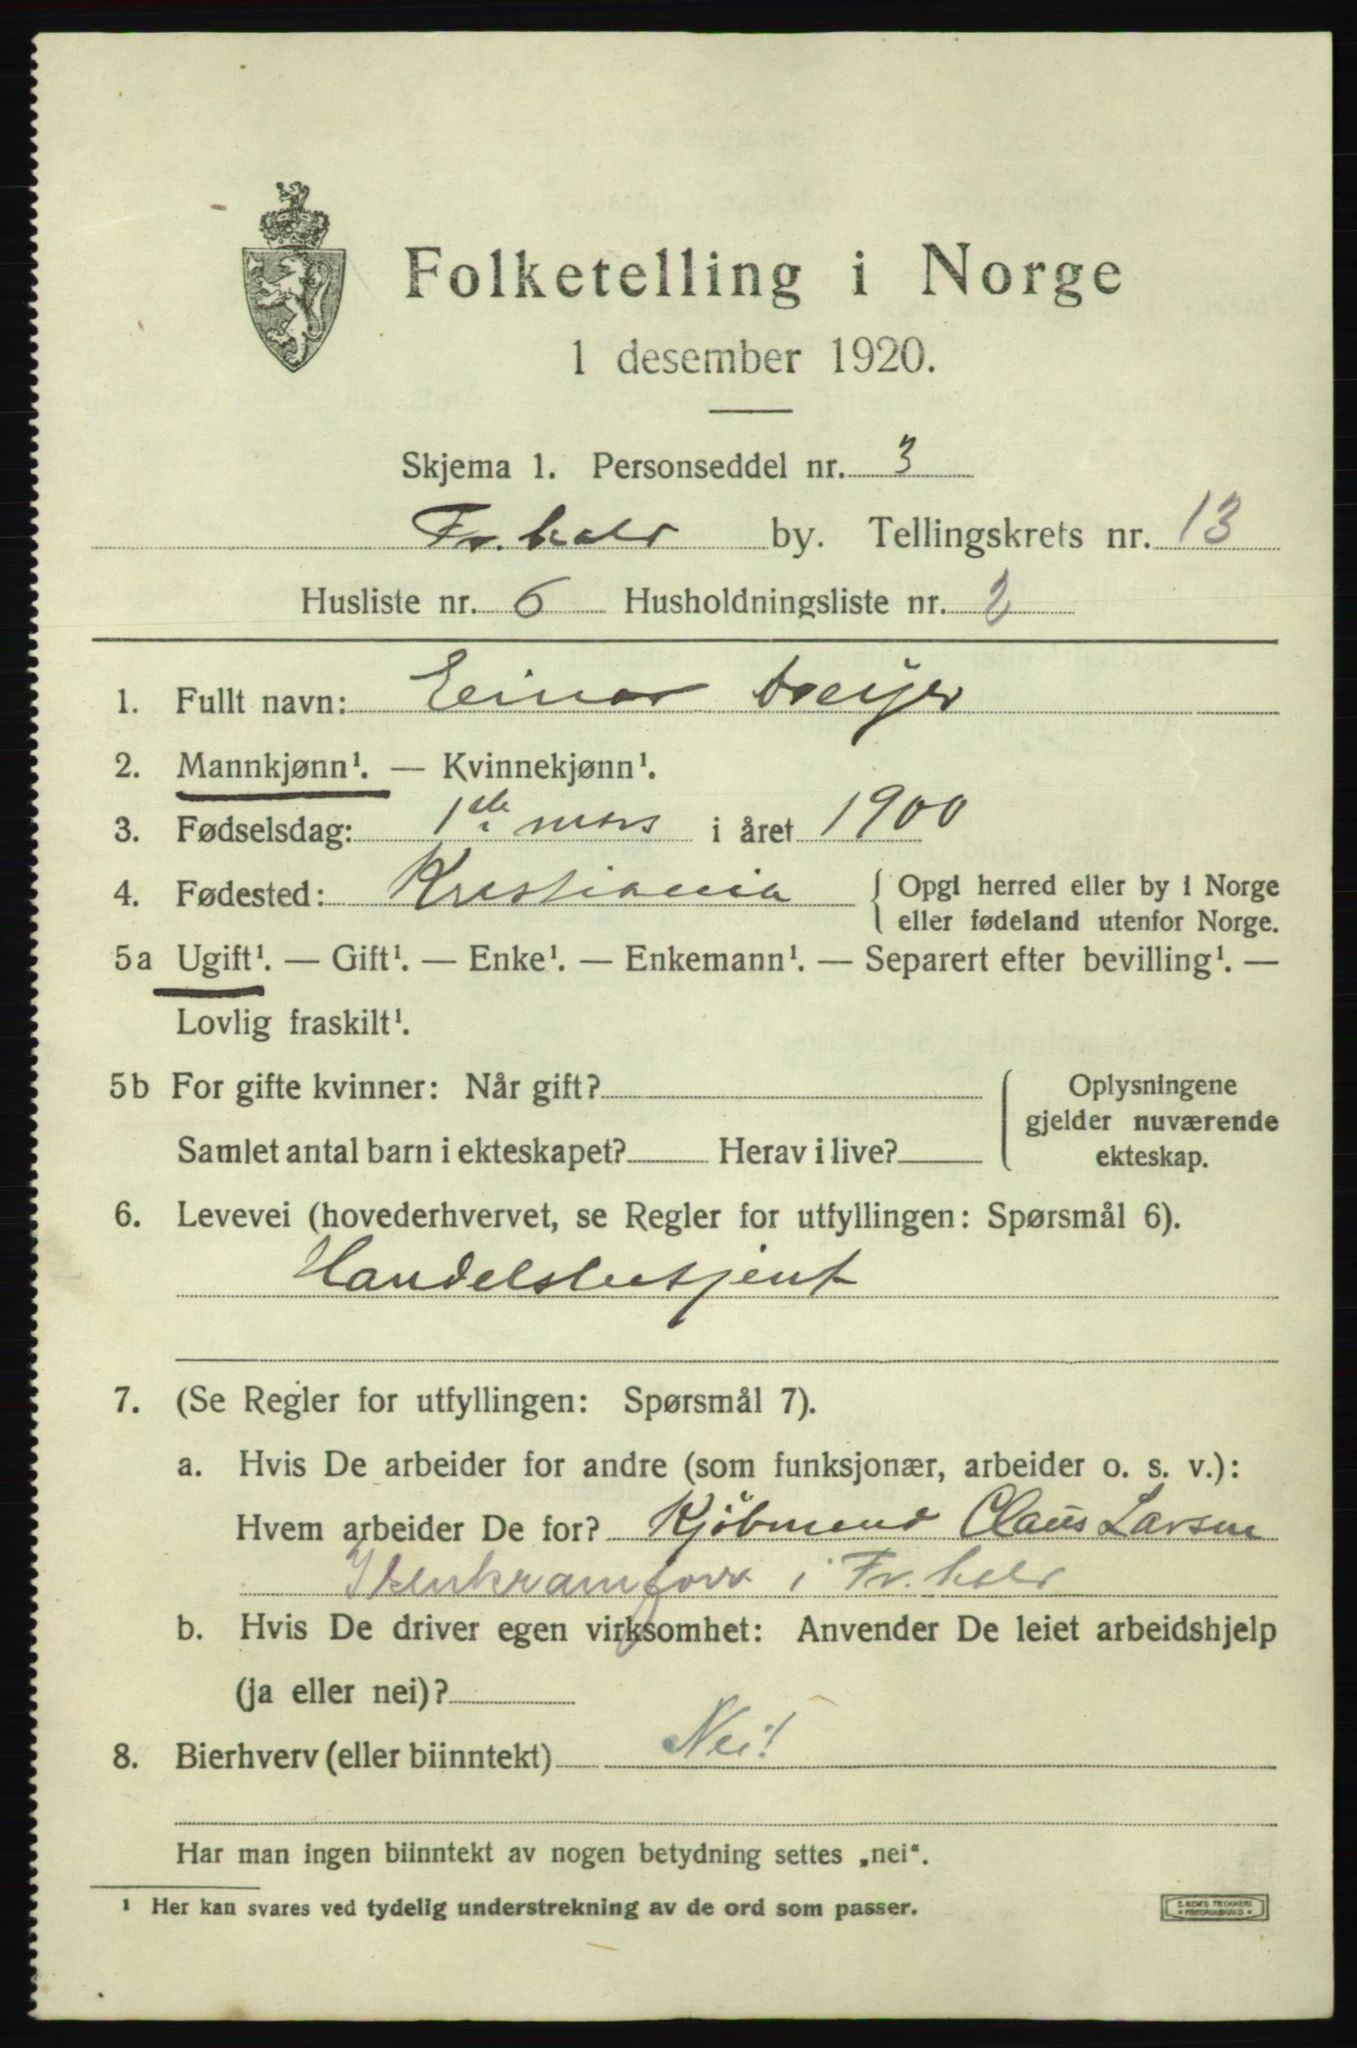 Folketelling i Norge
1 desember 1920.
Skjema 1. Personseddel nr. 3
Fr.hald by. Tellingskrets nr. 13
Husliste nr. 6 Husholdningsliste nr. 2
1. Fullt navn: Einar
2. Mannkjønn¹. — Kvinnekjønn¹.
3. Fødselsdag: 1ste mars i året 1900
4. Fødested: Kristiania { Opgi herred eller by i Norge
eller fødeland utenfor Norge.
5a Ugift¹. — Gift¹. — Enke¹. — Enkemann¹. — Separert efter bevilling¹. —
Lovlig fraskilt¹.
5b For gifte kvinner: Når gift?
Samlet antal barn i ekteskapet? Herav i live?
{ Oplysningene
gjelder nuværende
ekteskap.
6. Levevei (hovederhvervet, se Regler for utfyllingen: Spørsmål 6).
Handelsbetjent
7. (Se Regler for utfyllingen: Spørsmål 7).
a. Hvis De arbeider for andre (som funksjonær, arbeider o. s. v.):
Hvem arbeider De for? Kjöbmend Claus Larsen
i Fr.hald
b. Hvis De driver egen virksomhet: Anvender De leiet arbeidshjelp
(ja eller nei)?
8. Bierhverv (eller biinntekt) Nei!
Har man ingen biinntekt av nogen betydning settes „nei“.
¹ Her kan svares ved tydelig understrekning av de ord som passer.